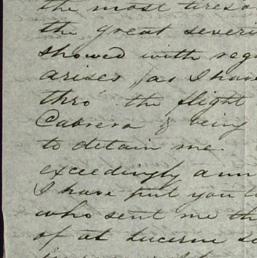 the most tireso
the great severi
showed with reg
arises, as I have
thro' the flight
Cabrera & being
to detain me.
exceedingly ann
I have put you t
who sent me th
of at Lucerne se